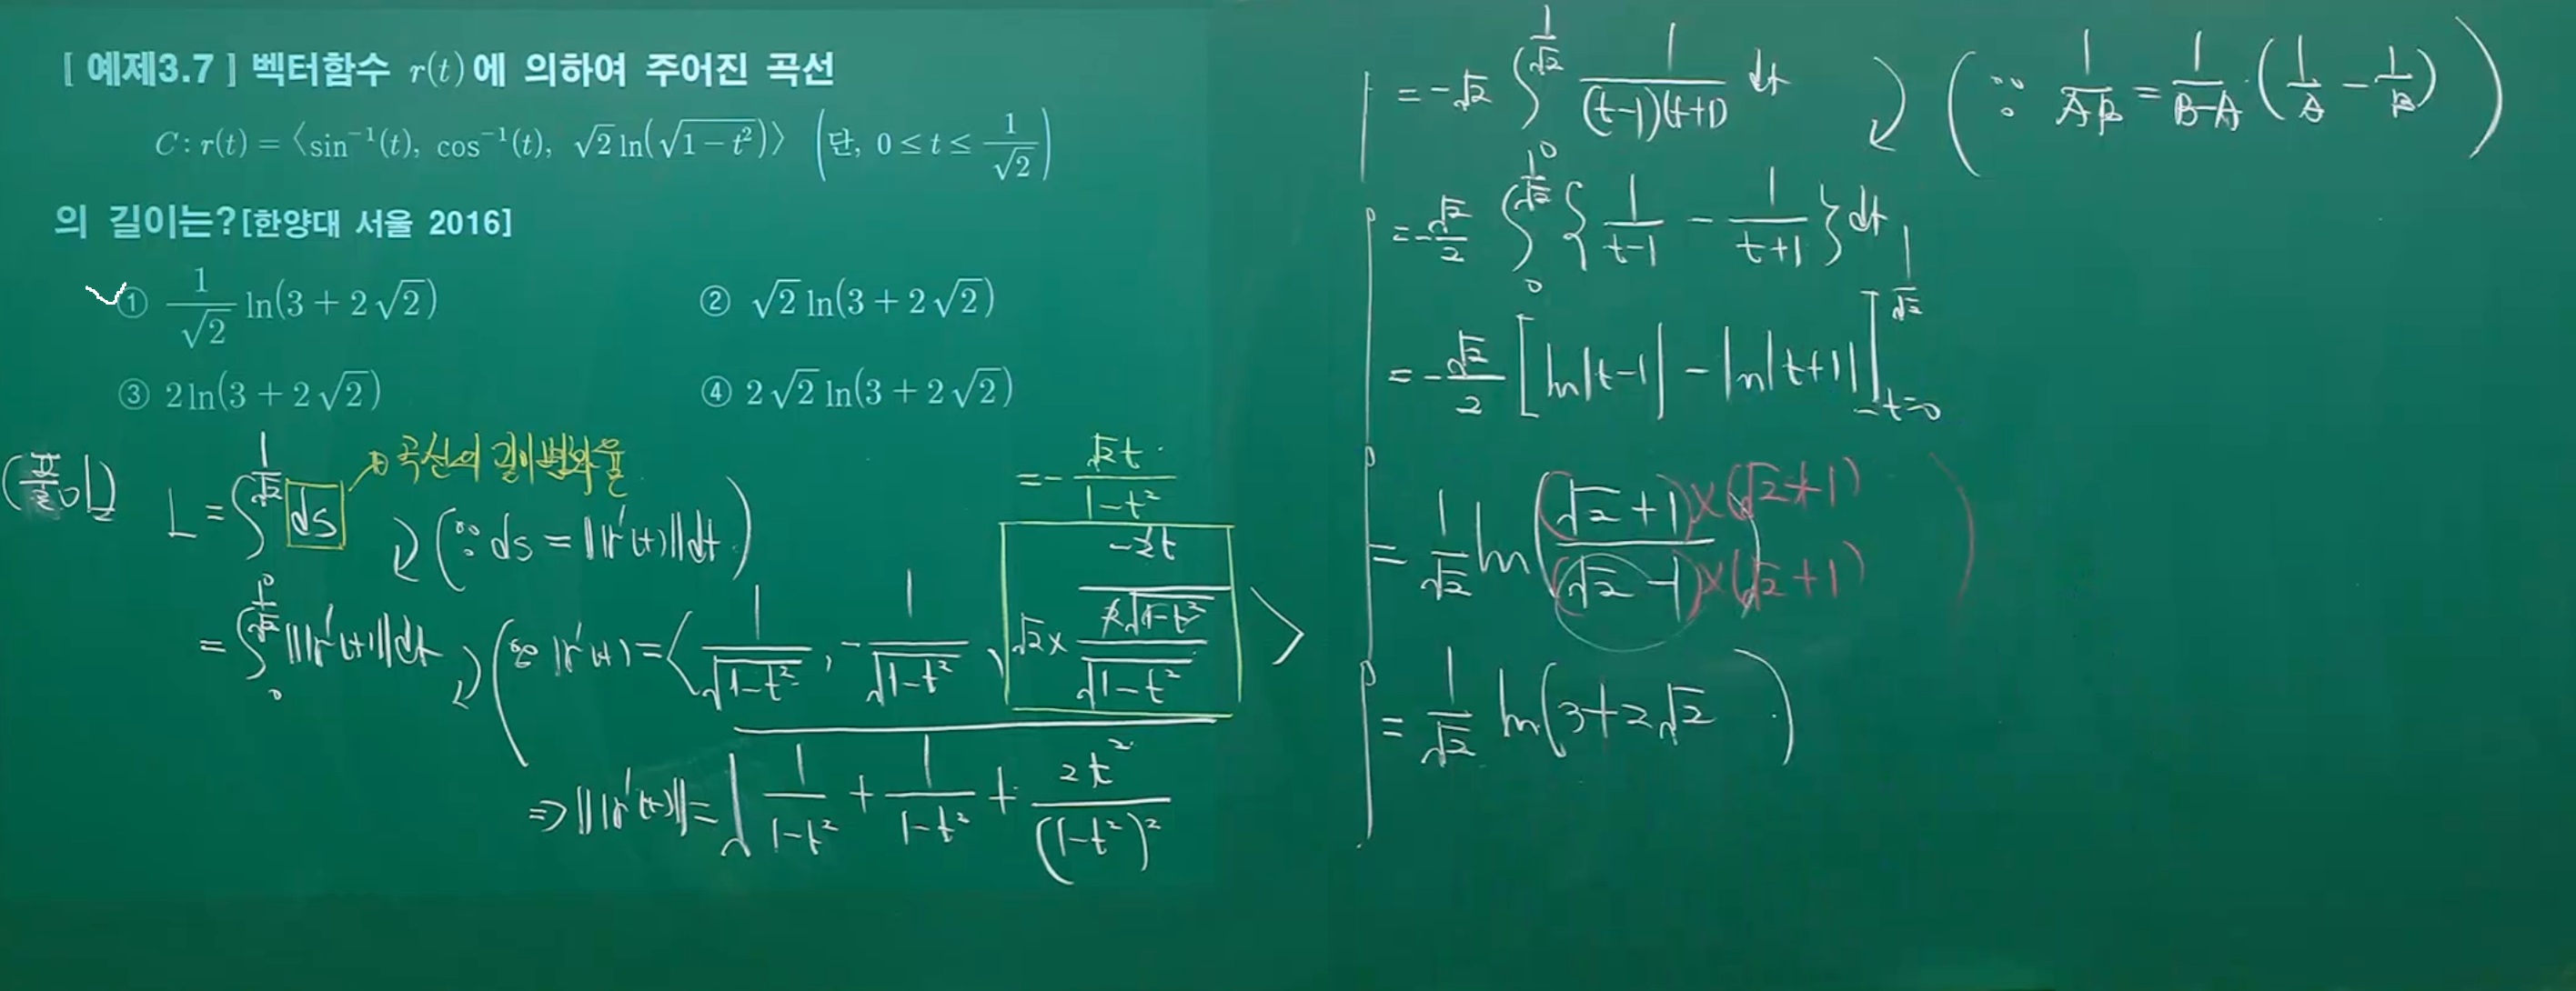 [ 예제3.7 ] 벡터함수 r(t)에 의하여 주어진 곡선
C : r(t) = ⟨sin⁻¹(t), cos⁻¹(t), √2 ln(√(1−t²))⟩ (단, 0 ≤ t ≤ 1/√2)
의 길이는? [한양대 서울 2016]
① 1/√2 ln(3+2√2) ② √2 ln(3+2√2)
③ 2ln(3+2√2) ④ 2√2 ln(3+2√2)
(풀이) L = ∫₀^(1/√2) ds → 곡선의 길이변화율
(∵ ds = ||r'(t)||dt)
= ∫₀^(1/√2) ||r'(t)||dt (∵ r'(t) = ⟨1/√(1−t²), −1/√(1−t²), √2 × (−2t/(2√(1−t²)))/√(1−t²)⟩
= −√2t/(1−t²)
⇒ ||r'(t)|| = √(1/(1−t²) + 1/(1−t²) + 2t²/(1−t²)²)
= −√2 ∫₀^(1/√2) 1/((t−1)(t+1)) dt (∵ 1/AB = 1/(B−A) · (1/A − 1/B))
= −√2/2 ∫₀^(1/√2) {1/(t−1) − 1/(t+1)} dt
= −√2/2 [ln|t−1| − ln|t+1|]_(t=0)^(1/√2)
= 1/√2 ln((√2+1)×(√2+1) / (√2−1)×(√2+1))
= 1/√2 ln(3+2√2)